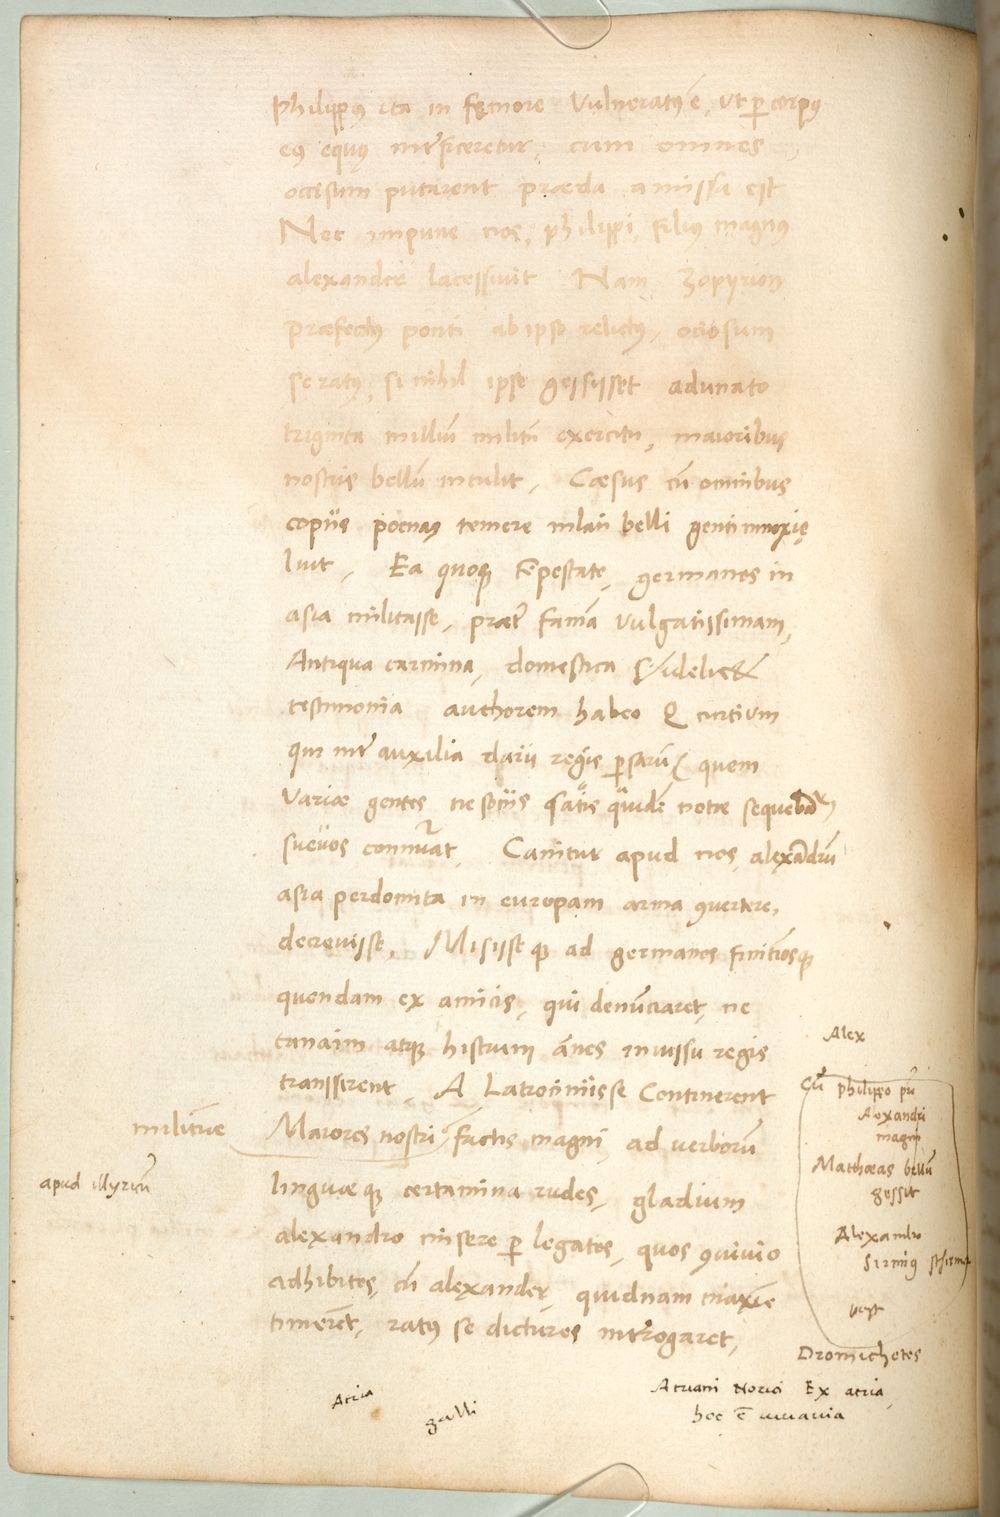 Philippus ita in fęmore Vulneratus ē, ut p corpus
eius equus interficeretur, cum omnes
occisum putarent præda amissa est
Nec impune nos, philippi, filius magnus
alexander lacessiuit Nam Zopyrion
præfectus ponti ab ipso relictus, ociosum
se ratus, si nihil ipse gessisset adunato
triginta milliū militū exercitu, maioribus
nostris bellū intulit, Cæsus cū omnibus
copiis poenas temere illati belli genti innoxię
luit, Ea quoque tēpestate, germanos in
asia militasse, præter famā Vulgatissimam,
Antiqua carmina, domestica Videlicet
testimonia authorem habeo Q curtium
qui inter auxilia darii regis psarū quem
Variæ gentes ne sociis satis quidē notæ sequebātur
sueuos connumerat, Canitur apud nos, alexādrū
asia perdomita in europam arma conuertere,
decreuisse, Misisse que ad germanos finitimosque
quendam ex amicis, qui denūciaret, ne
tanaim atque histrum amnes iniussu regis
transsirent, A Latrociniis se Continerent
Maiores nostri factis magni, ad verborū
linguæ que certamina rudes, gladium
alexandro misere p legatos, quos conuiuio
adhibitos, cū alexander, quidnam maxime
timerēt, ratus se dicturos interrogaret,
militiæ
apud illyricū
Alex
Cū philippo
Alexandri
magni
Matthæas bellū
gessit
Alexandro
Sirmus
post
Dromichetes
Atriani Norici Ex atria
hoc ē
Atria
galli